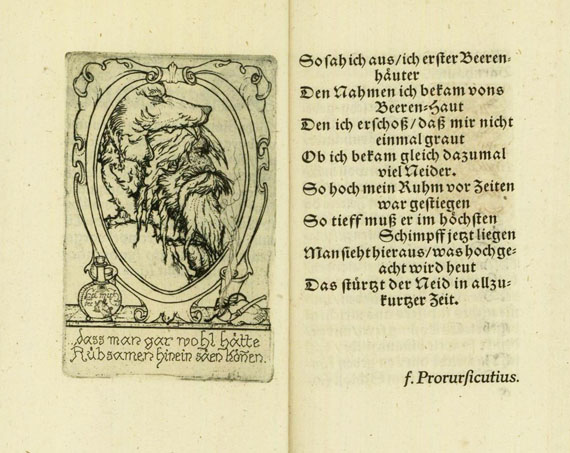 dass man gar wohl hätte
Rübsamen hinein säen könen.
So sah ich aus/ich erster Beeren-
häuter
Den Nahmen ich bekam vons
Beeren-Haut
Den ich erschoß/daß mir nicht
einmal graut
Ob ich bekam gleich dazumal
viel Neider.
So hoch mein Ruhm vor Zeiten
war gestiegen
So tieff muß er im höchsten
Schimpff jetzt liegen
Man sieht hieraus/was hoch ge-
acht wird heut
Das stürtzt der Neid in allzu-
kurtzer Zeit.
f. Prorursicutius.